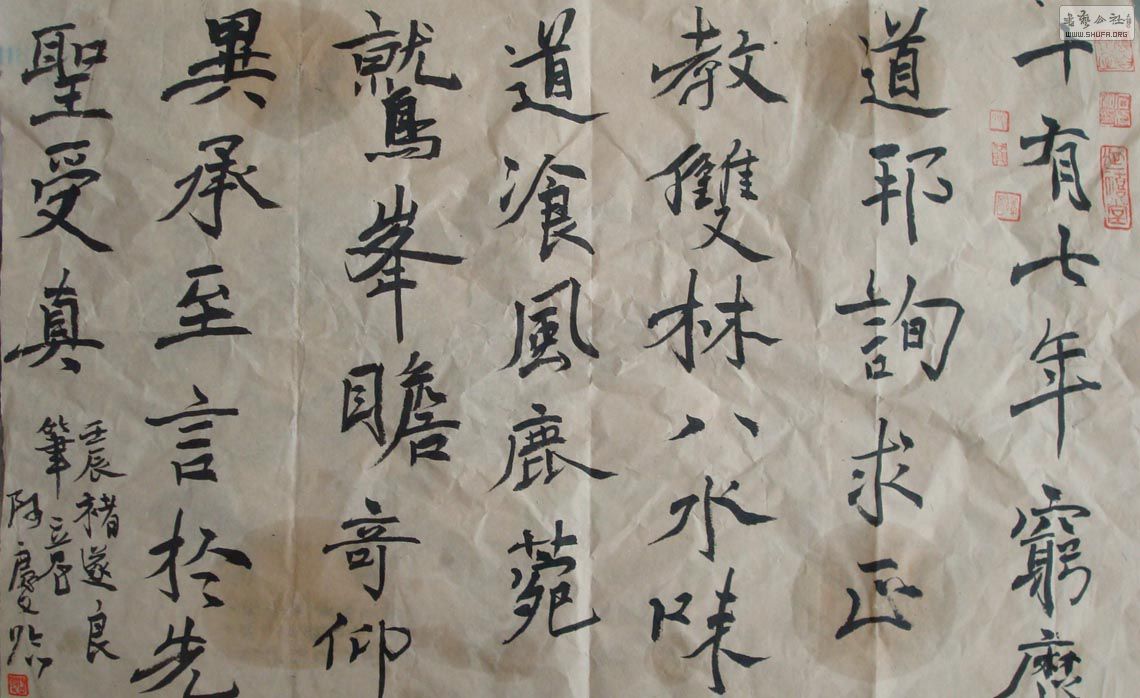 書藝公社
WWW.SHUFA.ORG
十有七年窮歷
道邦詢求正
教雙林八水味
道飡風鹿菀
鷲峯瞻奇仰
異承至言於先
聖受真
壬辰褚遂良
筆
陈慶临